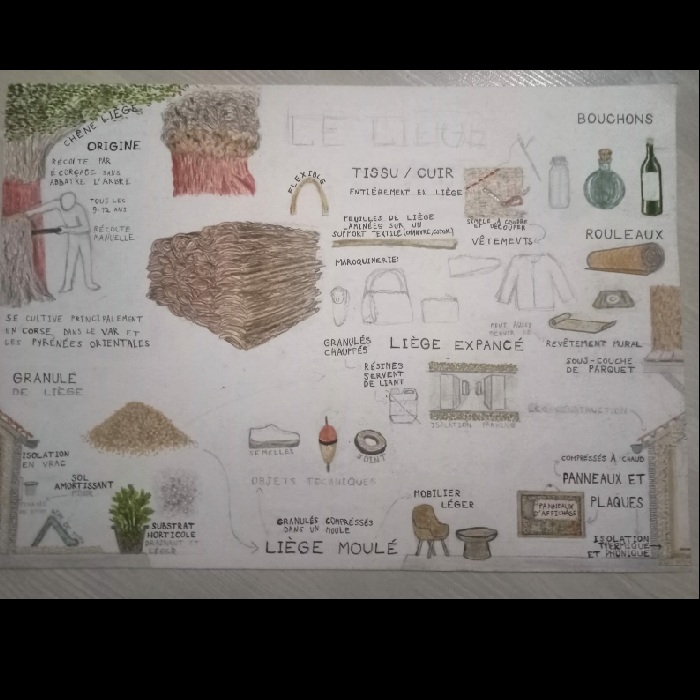 LE LIÈGE
CHÊNE LIÈGE
ORIGINE
RÉCOLTE PAR
ÉCORÇAGE SANS
ABBATRE L'ARBRE
TOUS LES
9-12 ANS
RÉCOLTE
MANUELLE
SE CULTIVE PRINCIPALEMENT
EN CORSE, DANS LE VAR ET
LES PYRÉNÉES ORIENTALES
FLEXIBLE
TISSU / CUIR
ENTIÈREMENT EN LIÈGE
FEUILLES DE LIÈGE
LAMINÉES SUR UN
SUPPORT TEXTILE (CHANVRE, COTON)
SIMPLE À COUDRE
ET DÉCOUPER
VÊTEMENTS
MAROQUINERIE
BOUCHONS
ROULEAUX
PEUT AUSSI
REVÊTEMENT MURAL
SOUS-COUCHE
DE PARQUET
GRANULÉS
CHAUFFÉS
LIÈGE EXPANCÉ
RÉSINES
SERVENT
DE LIANT
ISOLATION
GRANULE
DE LIÈGE
ISOLATION
EN VRAC
SOL
AMORTISSANT
SUBSTRAT
HORTICOLE
SEMELLES
JOINT
OBJETS TECHNIQUES
GRANULÉS COMPRESSÉS
DANS UN MOULE
LIÈGE MOULÉ
MOBILIER
LÉGER
COMPRESSÉS À CHAUD
PANNEAUX ET
PLAQUES
PANNEAUX
D'AFFICHAGE
ISOLATION
THERMIQUE
ET PHONIQUE